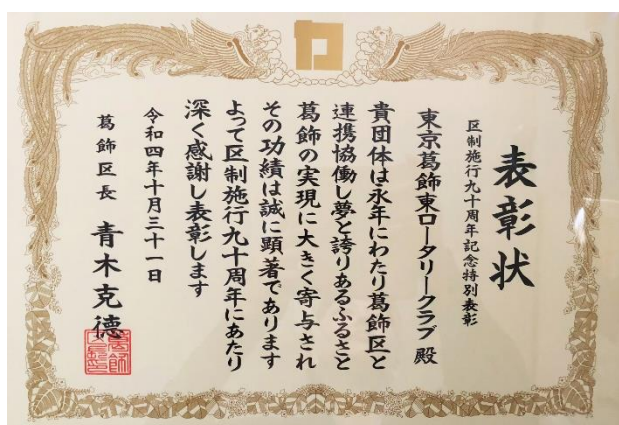 表彰状
区制施行九十周年記念特別表彰
東京葛飾東ロータリークラブ 殿
貴団体は永年にわたり葛飾区と
連携協働し夢と誇りあるふるさと
葛飾の実現に大きく寄与され
その功績は誠に顕著であります
よって区制施行九十周年にあたり
深く感謝し表彰します
令和四年十月三十一日
葛飾区長 青木克德